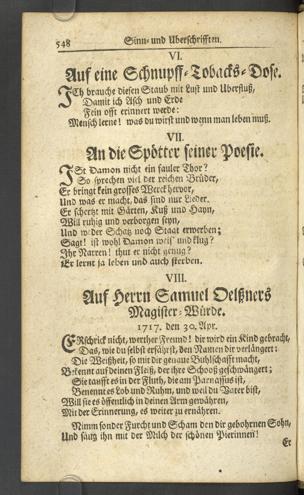 548 Sinn- und Uberschrifften.
VI.
Auf eine Schnupff-Tobacks-Dose.
ICh brauche diesen Staub mit Lust und Uberfluß,
Damit ich Asch und Erde
Fein offt erinnert werde:
Mensch lerne! was du wirst und wenn man leben muß.
VII.
An die Spötter seiner Poesie.
ISt Damon nicht ein fauler Thor?
So sprechen viel der reichen Brüder,
Er bringt kein grosses Werck hervor,
Und was er macht, das sind nur Lieder.
Er schertzt mit Gärten, Kuß und Hayn,
Will ruhig und verborgen seyn,
Und weder Schatz noch Staat erwerben;
Sagt! ist wohl Damon weis' und klug?
Ihr Narren! thut er nicht genug?
Er lernt ja leben und auch sterben.
VIII.
Auf Herrn Samuel Oelßners
Magister-Würde.
1717. den 30. Apr.
ERschrick nicht, werther Freund! dir wird ein Kind gebracht,
Das, wie du selbst erfährst, den Namen dir verlängert:
Die Weißheit, so mit dir genaue Buhlschafft macht,
Bekennt auf deinen Fleiß, der ihre Schooß geschwängert;
Sie taufft es in der Fluth, die am Parnassus ist,
Benennt es Lob und Ruhm, und weil du Vater bist,
Will sie es öffentlich in deinen Arm gewähren,
Mit der Erinnerung, es weiter zu ernähren.
Nimm sonder Furcht und Scham den dir gebohrnen Sohn,
Und säug ihn mit der Milch der schönen Pierinnen!
Er